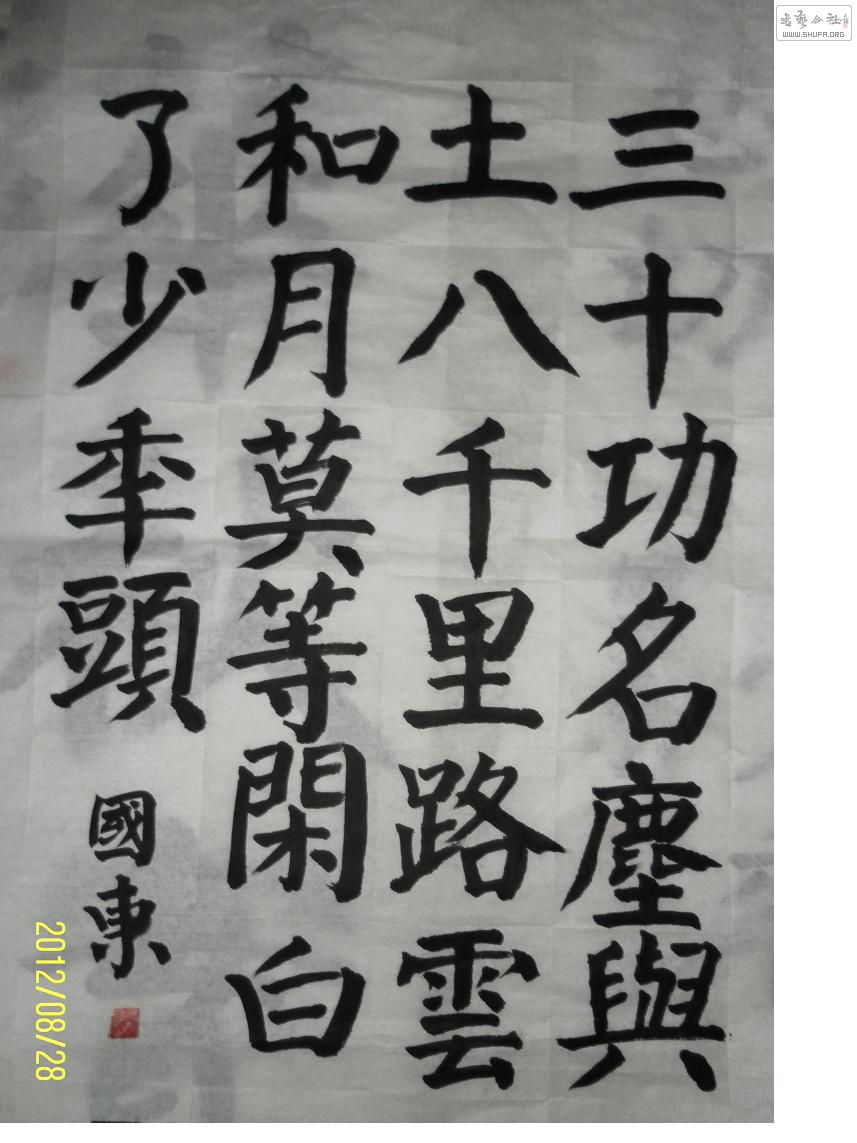 三十功名塵與
土八千里路雲
和月莫等閑白
了少年頭
國東
2012/08/28
書藝公社
WWW.SHUFA.ORG